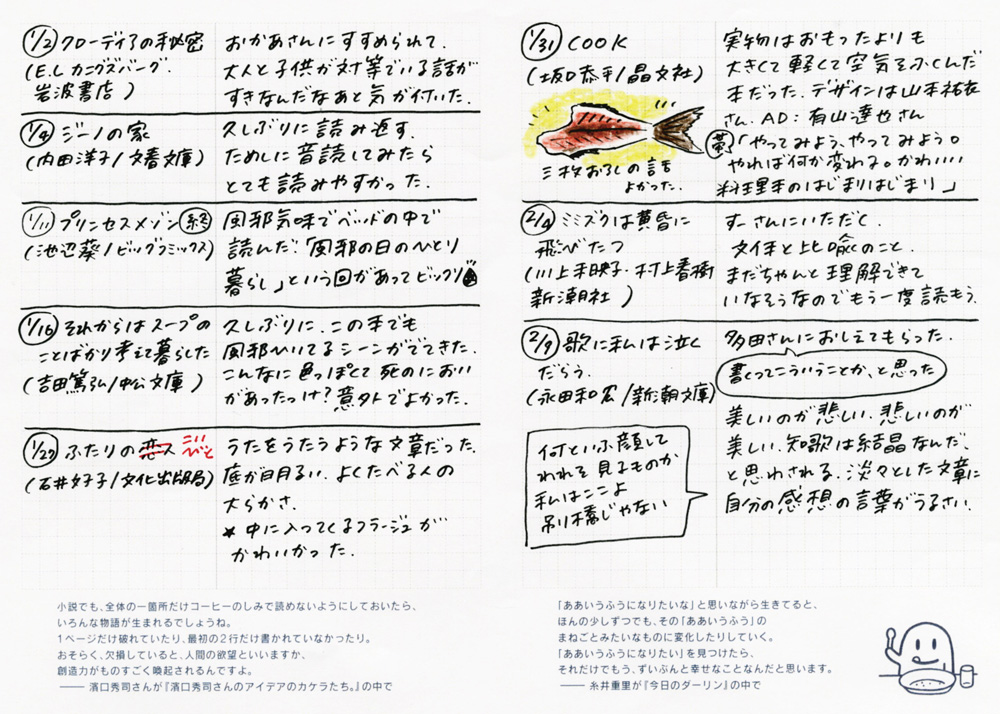 1/2 クローディアの秘密
(E.L カニグズバーグ.
岩波書店)
おかあさんにすすめられて.
大人と子供が対等でいる話が
すきなんだなあと気が付いた.
1/4 ジーノの家
(内田洋子/文春文庫)
久しぶりに読み返す.
ためしに音読してみたら
とても読みやすかった.
1/11 プリンセスメゾン 終
(池辺葵/ビッグコミックス)
風邪気味でベッドの中で
読んだ.「風邪の日のひとり
暮らし」という回があってビックリ
1/16 それからはスープの
ことばかり考えて暮らした
(吉田篤弘/中公文庫)
久しぶりに. この本でも
風邪ひいてるシーンがでてきた.
こんなに色っぽくて死のにおい
があったっけ? 意外でよかった.
1/27 ふたりの恋ス こいびと
(石井好子/文化出版局)
うたをうたうような文章だった.
底が明るい. よくたべる人の
大らかさ.
* 中に入ってくるコラージュが
かわいかった.
小説でも、全体の一箇所だけコーヒーのしみで読めないようにしておいたら、
いろんな物語が生まれるでしょうね。
1ページだけ破れていたり、最初の2行だけ書かれていなかったり。
おそらく、欠損していると、人間の欲望といいますか、
創造力がものすごく喚起されるんですよ。
—— 濱口秀司さんが『濱口秀司さんのアイデアのカケラたち。』の中で
1/31 COOK
(坂口恭平/晶文社)
三枚おろしの話
よかった.
実物はおもったよりも
大きくて軽くて空気をふくんだ
本だった. デザインは山本祐衣
さん. AD: 有山達也さん
「やってみよう、やってみよう。
やれば何か変わる。かわいい
料理本のはじまりはじまり」
2/4 ミミズクは黄昏に
飛びたつ
(川上未映子・村上春樹
新潮社)
すーさんにいただく.
文体と比喩のこと.
まだちゃんと理解できて
いなそうなのでもう一度読もう.
2/9 歌に私は泣く
だらう.
(永田和宏/新潮文庫)
何といふ顔して
われを見るものか
私はここよ
吊り橋じゃない
多田さんにおしえてもらった.
書くってこういうことか、と思った
美しいのが悲しい. 悲しいのが
美しい. 短歌は結晶なんだ、
と思わされる. 淡々とした文章に
自分の感想の言葉がうるさい.
「ああいうふうになりたいな」と思いながら生きてると、
ほんの少しずつでも、その「ああいうふう」の
まねごとみたいなものに変化したりしていく。
「ああいうふうになりたい」を見つけたら、
それだけでもう、ずいぶんと幸せなことなんだと思います。
—— 糸井重里が『今日のダーリン』の中で